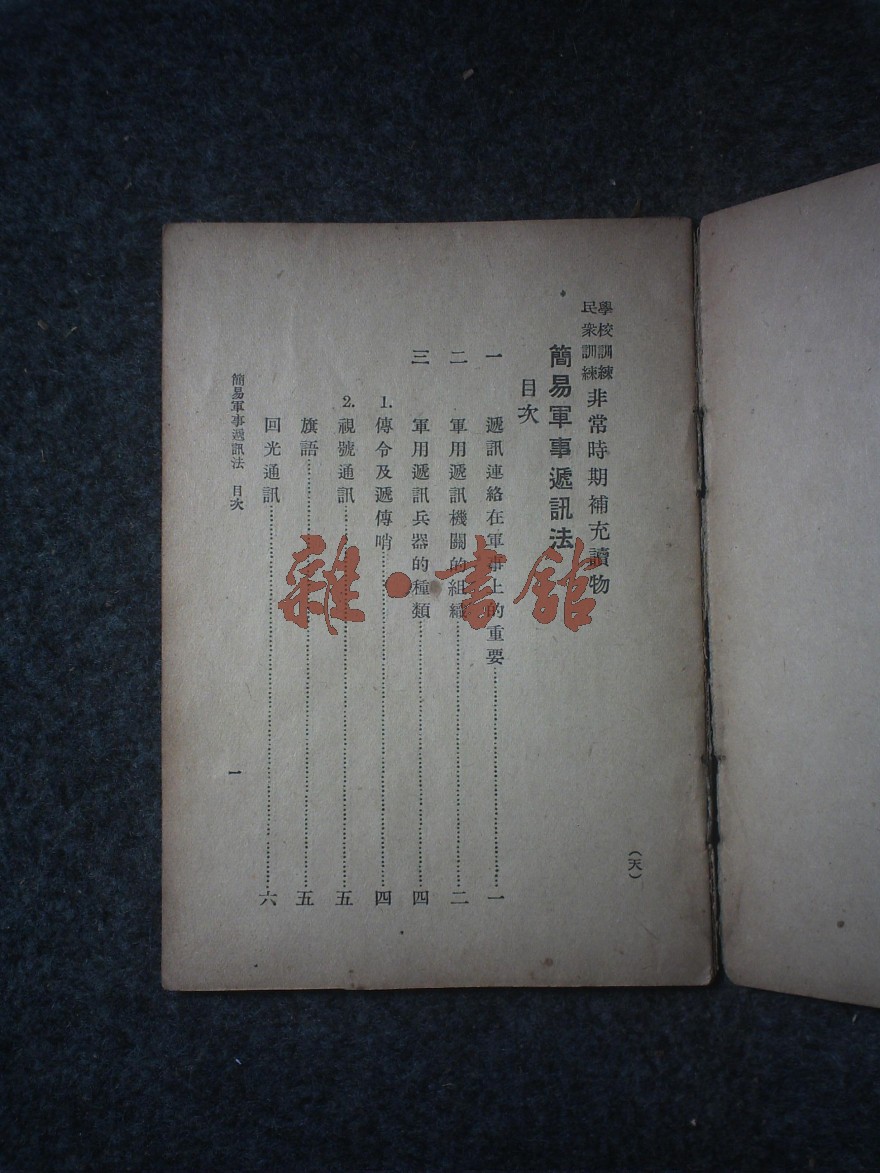 學校訓練
民衆訓練
非常時期補充讀物
簡易軍事遞訊法
目次
一 遞訊連絡在軍事上的重要……一
二 軍用遞訊機關的組織……二
三 軍用遞訊兵器的種類……四
1. 傳令及遞傳哨……四
2. 視號通訊……五
旗語……五
回光通訊……六
簡易軍事遞訊法 目次 一
(天)
雜·書館